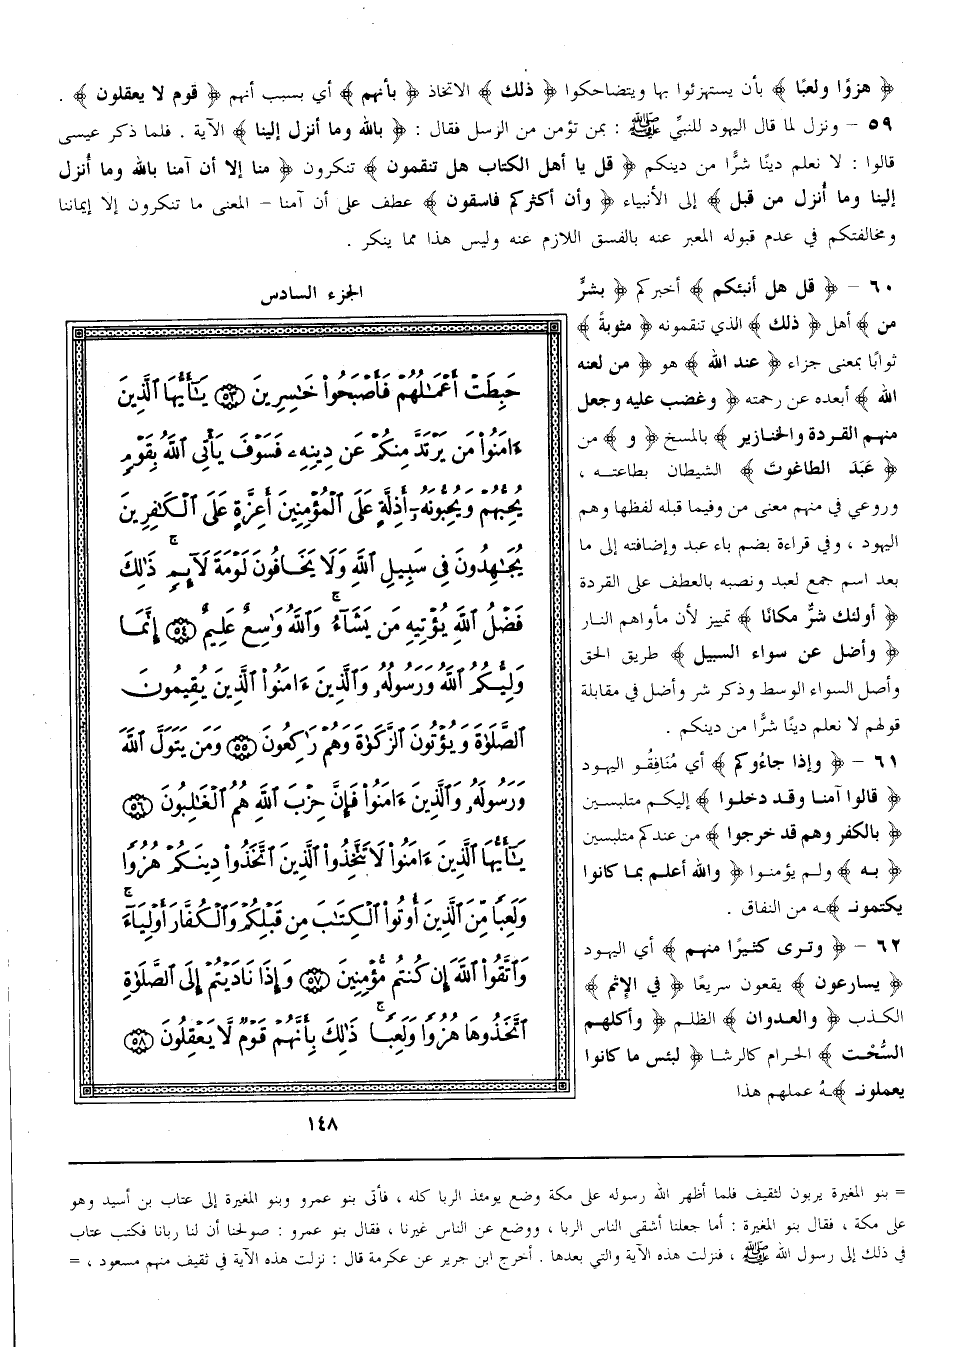 ﴿ هزوًا ولعبًا ﴾ بأن يستهزئوا بها ويتضاحكوا ﴿ ذلك ﴾ الاتخاذ ﴿ بأنهم ﴾ أي بسبب أنهم ﴿ قوم لا يعقلون ﴾ .
٥٩ - ونزل لما قال اليهود للنبيِّ ﷺ : بمن تؤمن من الرسل فقال : ﴿ بالله وما أنزل إلينا ﴾ الآية . فلما ذكر عيسى
قالوا : لا نعلم دينًا شرًّا من دينكم ﴿ قل يا أهل الكتاب هل تنقمون ﴾ تنكرون ﴿ منا إلا أن آمنا بالله وما أُنزل
إلينا وما أُنزل من قبل ﴾ إلى الأنبياء ﴿ وأن أكثركم فاسقون ﴾ عطف على أن آمنا - المعنى ما تنكرون إلا إيماننا
ومخالفتكم في عدم قبوله المعبر عنه بالفسق اللازم عنه وليس هذا مما ينكر .
٦٠ - ﴿ قل هل أنبئكم ﴾ أخبركم ﴿ بشرٍّ
من ﴾ أهل ﴿ ذلك ﴾ الذي تنقمونه ﴿ مثوبةً ﴾
ثوابًا بمعنى جزاء ﴿ عند الله ﴾ هو ﴿ من لعنه
الله ﴾ أبعده عن رحمته ﴿ وغضب عليه وجعل
منهم القردة والخنازير ﴾ بالمسخ ﴿ و ﴾ من
﴿ عَبَدَ الطاغوتَ ﴾ الشيطان بطاعته ،
وروعي في منهم معنى من وفيما قبله لفظها وهم
اليهود ، وفي قراءة بضم باء عبد وإضافته إلى ما
بعد اسم جمع لعبد ونصبه بالعطف على القردة
﴿ أولئك شرٌّ مكانًا ﴾ تمييز لأن مأواهم النار
﴿ وأضل عن سواء السبيل ﴾ طريق الحق
وأصل السواء الوسط وذكر شر وأضل في مقابلة
قولهم لا نعلم دينًا شرًّا من دينكم .
٦١ - ﴿ وإذا جاءُوكم ﴾ أي مُنَافِقُو اليهود
﴿ قالوا آمنا وقد دخلوا ﴾ إليكم متلبسين
﴿ بالكفر وهم قد خرجوا ﴾ من عندكم متلبسين
﴿ به ﴾ ولم يؤمنوا ﴿ والله أعلم بما كانوا
يكتمونـ ﴾ـه من النفاق .
٦٢ - ﴿ وترى كثيرًا منهم ﴾ أي اليهود
﴿ يسارعون ﴾ يقعون سريعًا ﴿ في الإثم ﴾
الكذب ﴿ والعدوان ﴾ الظلم ﴿ وأكلهم
السُّحْت ﴾ الحرام كالرشا ﴿ لبئس ما كانوا
يعملونـ ﴾ـهُ عملهم هذا
الجزء السادس
حَبِطَتْ أَعْمَـٰلُهُمْ فَأَصْبَحُوا۟ خَـٰسِرِينَ ٥٣ يَـٰٓأَيُّهَا ٱلَّذِينَ
ءَامَنُوا۟ مَن يَرْتَدَّ مِنكُمْ عَن دِينِهِۦ فَسَوْفَ يَأْتِى ٱللَّهُ بِقَوْمٍ
يُحِبُّهُمْ وَيُحِبُّونَهُۥٓ أَذِلَّةٍ عَلَى ٱلْمُؤْمِنِينَ أَعِزَّةٍ عَلَى ٱلْكَـٰفِرِينَ
يُجَـٰهِدُونَ فِى سَبِيلِ ٱللَّهِ وَلَا يَخَافُونَ لَوْمَةَ لَآئِمٍ ۚ ذَٰلِكَ
فَضْلُ ٱللَّهِ يُؤْتِيهِ مَن يَشَآءُ ۚ وَٱللَّهُ وَٰسِعٌ عَلِيمٌ ٥٤ إِنَّمَا
وَلِيُّكُمُ ٱللَّهُ وَرَسُولُهُۥ وَٱلَّذِينَ ءَامَنُوا۟ ٱلَّذِينَ يُقِيمُونَ
ٱلصَّلَوٰةَ وَيُؤْتُونَ ٱلزَّكَوٰةَ وَهُمْ رَٰكِعُونَ ٥٥ وَمَن يَتَوَلَّ ٱللَّهَ
وَرَسُولَهُۥ وَٱلَّذِينَ ءَامَنُوا۟ فَإِنَّ حِزْبَ ٱللَّهِ هُمُ ٱلْغَـٰلِبُونَ ٥٦
يَـٰٓأَيُّهَا ٱلَّذِينَ ءَامَنُوا۟ لَا تَتَّخِذُوا۟ ٱلَّذِينَ ٱتَّخَذُوا۟ دِينَكُمْ هُزُوًا
وَلَعِبًا مِّنَ ٱلَّذِينَ أُوتُوا۟ ٱلْكِتَـٰبَ مِن قَبْلِكُمْ وَٱلْكُفَّارَ أَوْلِيَآءَ ۚ
وَٱتَّقُوا۟ ٱللَّهَ إِن كُنتُم مُّؤْمِنِينَ ٥٧ وَإِذَا نَادَيْتُمْ إِلَى ٱلصَّلَوٰةِ
ٱتَّخَذُوهَا هُزُوًا وَلَعِبًا ۚ ذَٰلِكَ بِأَنَّهُمْ قَوْمٌ لَّا يَعْقِلُونَ ٥٨
١٤٨
= بنو المغيرة يربون لثقيف فلما أظهر الله رسوله على مكة وضع يومئذ الربا كله ، فأتى بنو عمرو وبنو المغيرة إلى عتاب بن أسيد وهو
على مكة ، فقال بنو المغيرة : أما جعلنا أشقى الناس الربا ، ووضع عن الناس غيرنا ، فقال بنو عمرو : صولحنا أن لنا ربانا فكتب عتاب
في ذلك إلى رسول الله ﷺ ، فنزلت هذه الآية والتي بعدها . أخرج ابن جرير عن عكرمة قال : نزلت هذه الآية في ثقيف منهم مسعود ، =